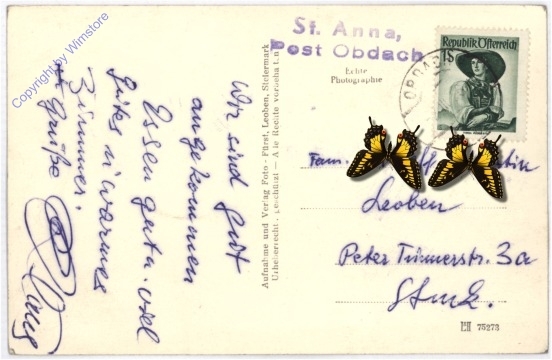 Copyright by Wimstore
St. Anna,
Post Obdach
Echte
Photographie
Republik Österreich
1S
OBDA
Wir sind gut
angekommen
Essen gut u. viel
gutes u. warmes
Zimmer.
Grüße
Aufnahme und Verlag Foto - Fürst, Leoben, Steiermark
Urheberrecht. geschützt — Alle Rechte vorbehalten
Fam.
Leoben
Peter Tunnerstr. 3a
Stmk.
75273